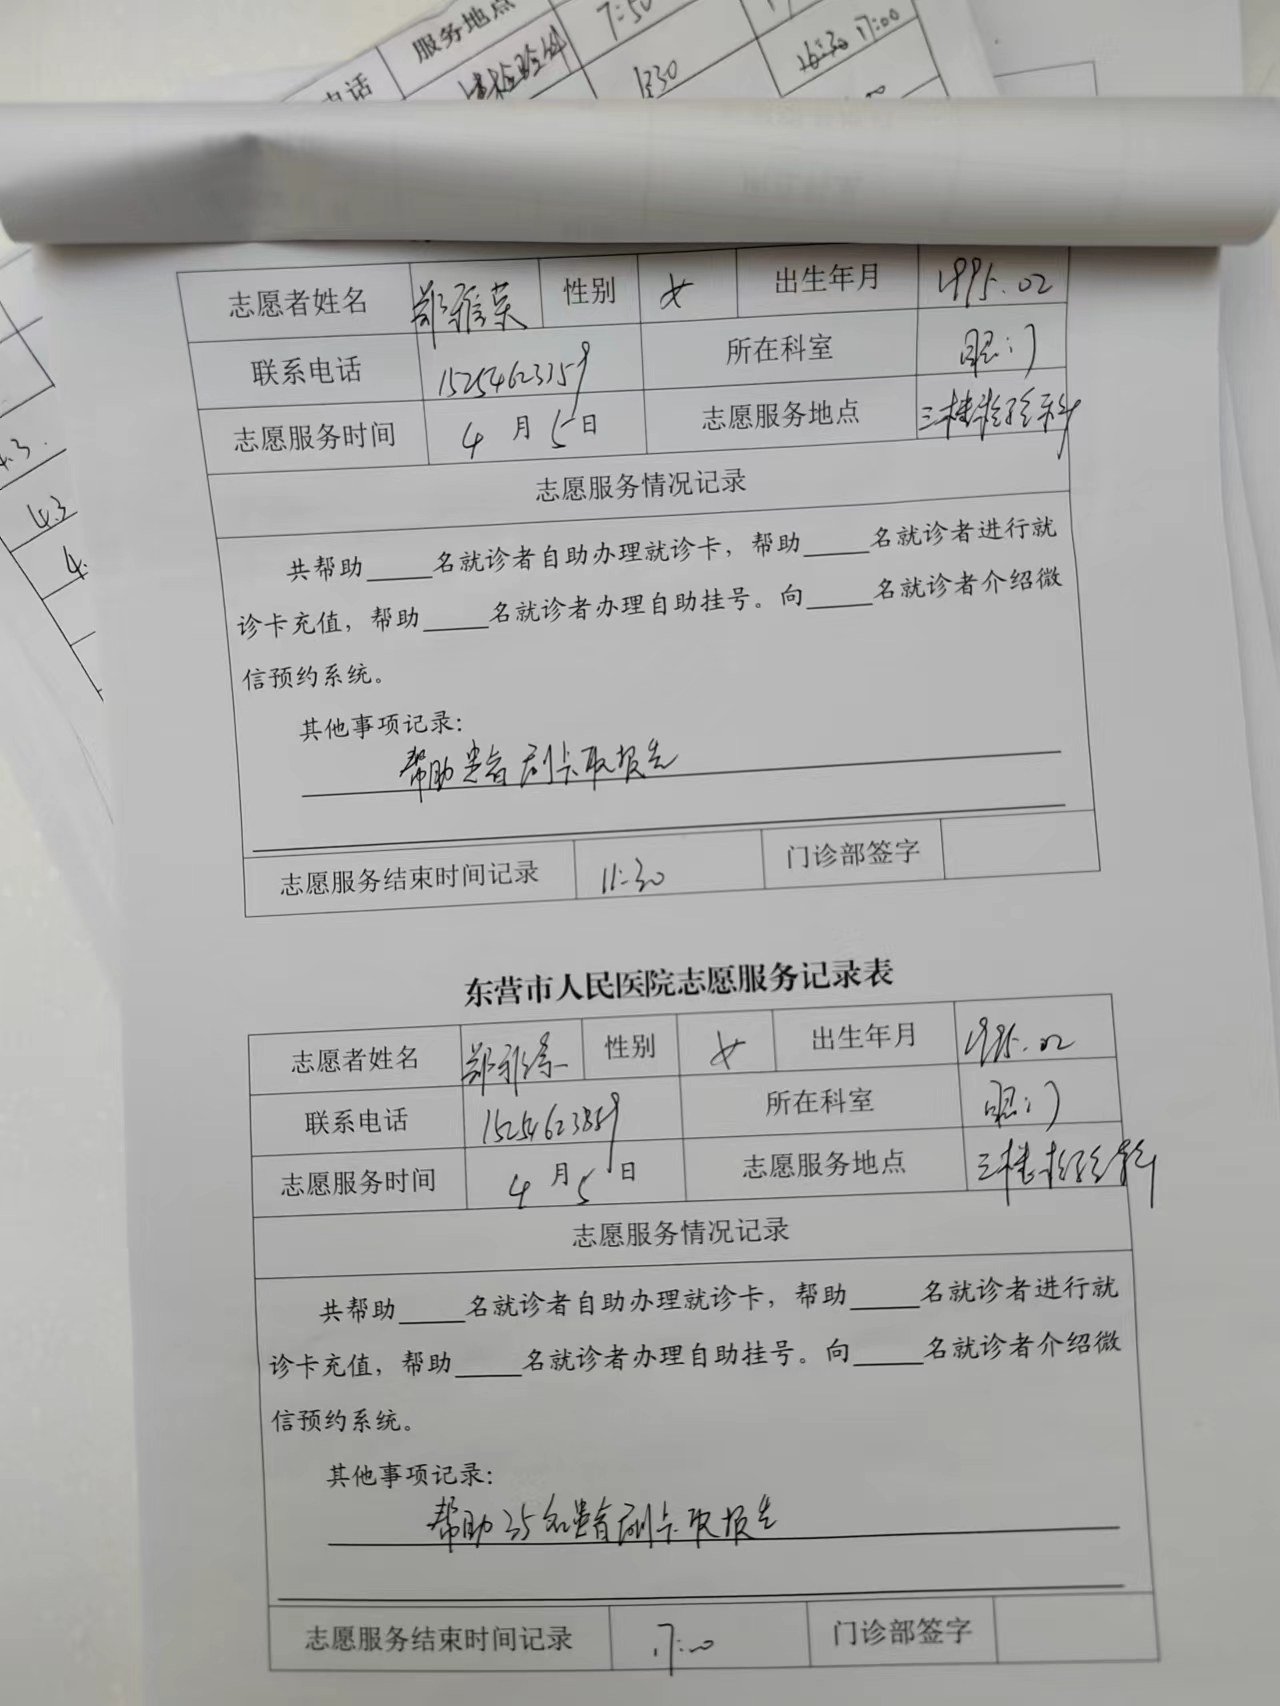 电话 服务地点 7:50
检验科 1:30 16:30 17:00
志愿者姓名 郑雅荣 性别 女 出生年月 1995.02
联系电话 所在科室 眼门
志愿服务时间 4月5日 志愿服务地点 三楼检验科
志愿服务情况记录
共帮助_____名就诊者自助办理就诊卡，帮助_____名就诊者进行就
诊卡充值，帮助_____名就诊者办理自助挂号。向_____名就诊者介绍微
信预约系统。
其他事项记录：
帮助患者刷卡取报告
志愿服务结束时间记录 11:30 门诊部签字
4.3
4.3
东营市人民医院志愿服务记录表
志愿者姓名 郑雅 性别 女 出生年月 1995.02
联系电话 15254623859 所在科室 眼门
志愿服务时间 4月5日 志愿服务地点 三楼检验科
志愿服务情况记录
共帮助_____名就诊者自助办理就诊卡，帮助_____名就诊者进行就
诊卡充值，帮助_____名就诊者办理自助挂号。向_____名就诊者介绍微
信预约系统。
其他事项记录：
帮助35名患者刷卡取报告
志愿服务结束时间记录 17:00 门诊部签字